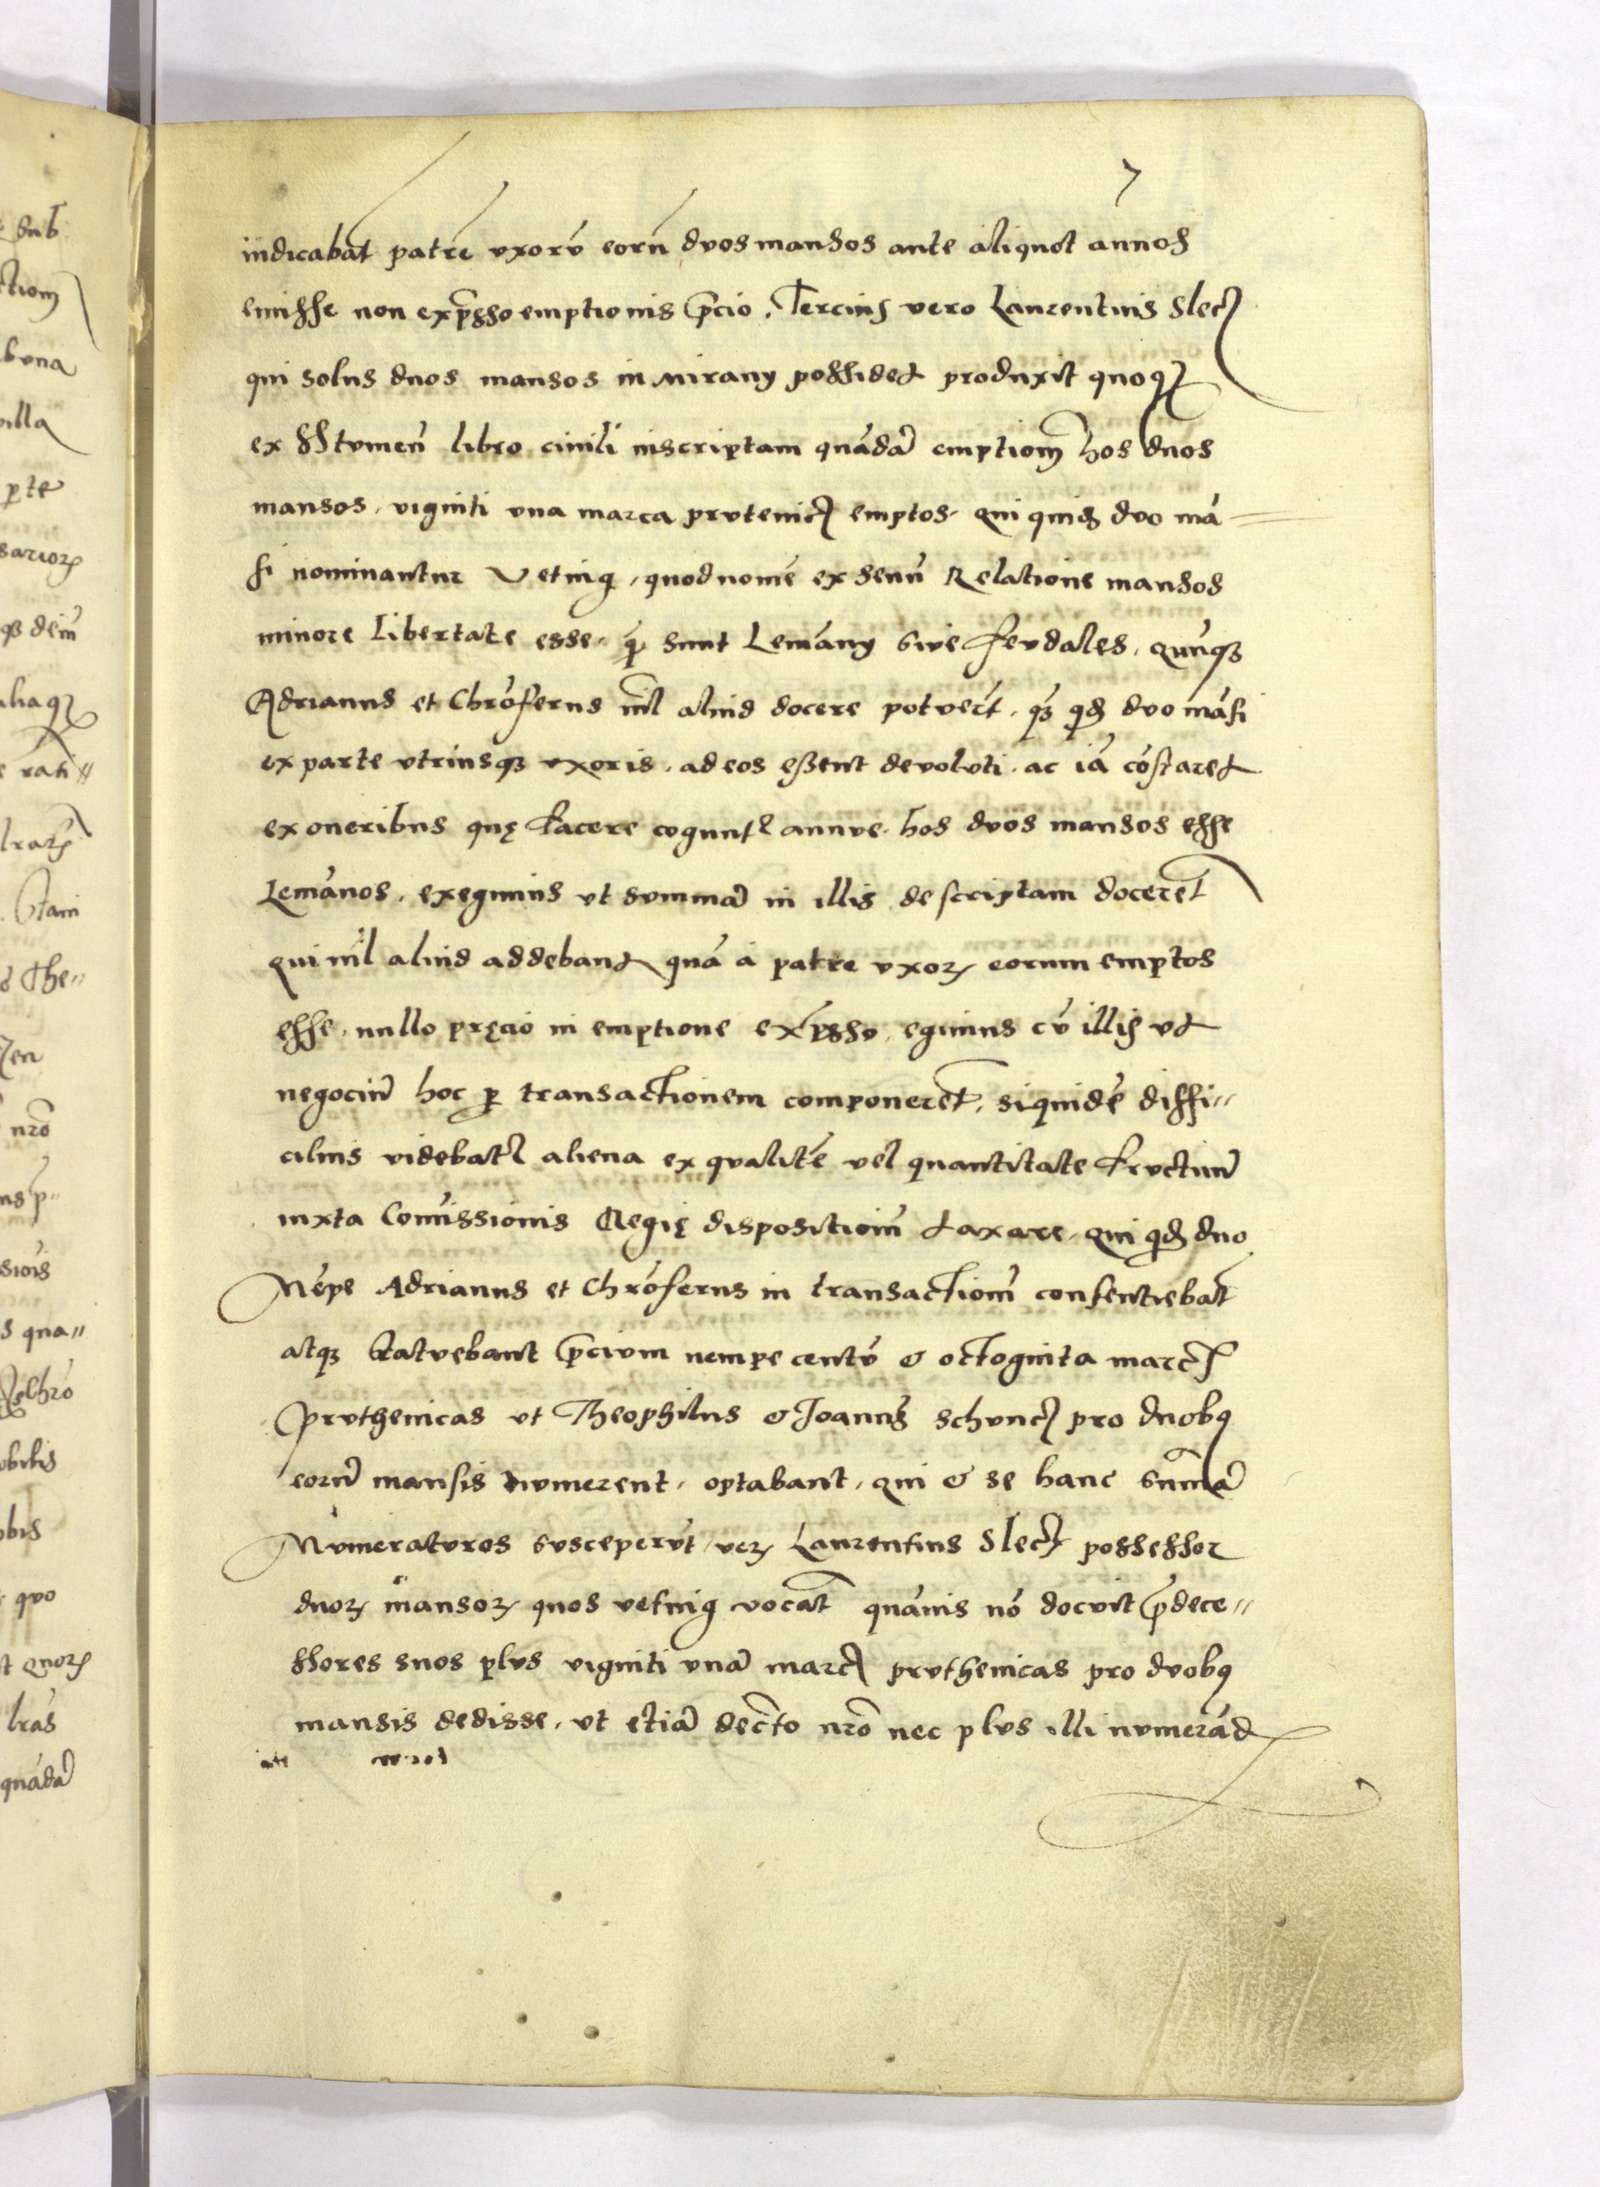 7
indicabāt patrē vxorū eorū duos mansos ante aliquot annos
emisse non exp̄sso emptionis p̄cio. Tercius vero Laurentius Slecʒ
qui solus duos mansos in mirany possidet produxit quoqʒ
ex Stumeñ libro ciuili inscriptam quādā emptionē hos duos
mansos, viginti vna marca prutenicʒ emptos. qui quidē duo mā=
si nominantur Veting, quod nomē ex senū Relatione mansos
minore libertate esse. q̄ sunt Lemāny siue feudales, qūnqʒ
Adrianus et Chrōferus nīl aliud docere potuer̄t. qʒ qd̄ duo māsi
ex parte vtriusqʒ vxoris. ad eos essent deuoluti. ac iā cōstaret
ex oneribus quę facere cogunt᷑ annue. hos duos mansos esse
Lemānos. exegimus vt summā in illis descriptam docerēt
qui nīl aliud addebant quā a patre vxorꝝ eorum emptos
esse. nullo pręcio in emptione exp̄sso, egimus cū illis vt
negociū hoc ꝑ transactionem componerēt. siquidē diffi=
cilius videbat᷑ aliena ex qualitē vel quantitate fructuū
iuxta Com̄issionis Regię dispositionē taxare. qui qd̄ duo
Nēpe Adrianus et Chrōferus in transactionē consentiebāt
atqʒ statuebant p̄cium nempe centū & octoginta marcʒ
pruthenicas vt Theophilus & Joannes Schuncʒ pro duobꝯ
eorū mansis numerent. optabant. qui & se hanc sum̄ā
Numeraturos susceperūt, verꝝ Laurentius Slecʒ possessor
duorꝝ mansorꝝ quos vetnig vocāt quāuis nō docuit p̄dece=
ssores suos plus viginti vnā marcʒ pruthenicas pro duobꝯ
mansis dedisse. vt etiā decr̄to nr̄o nec plus illi numerād